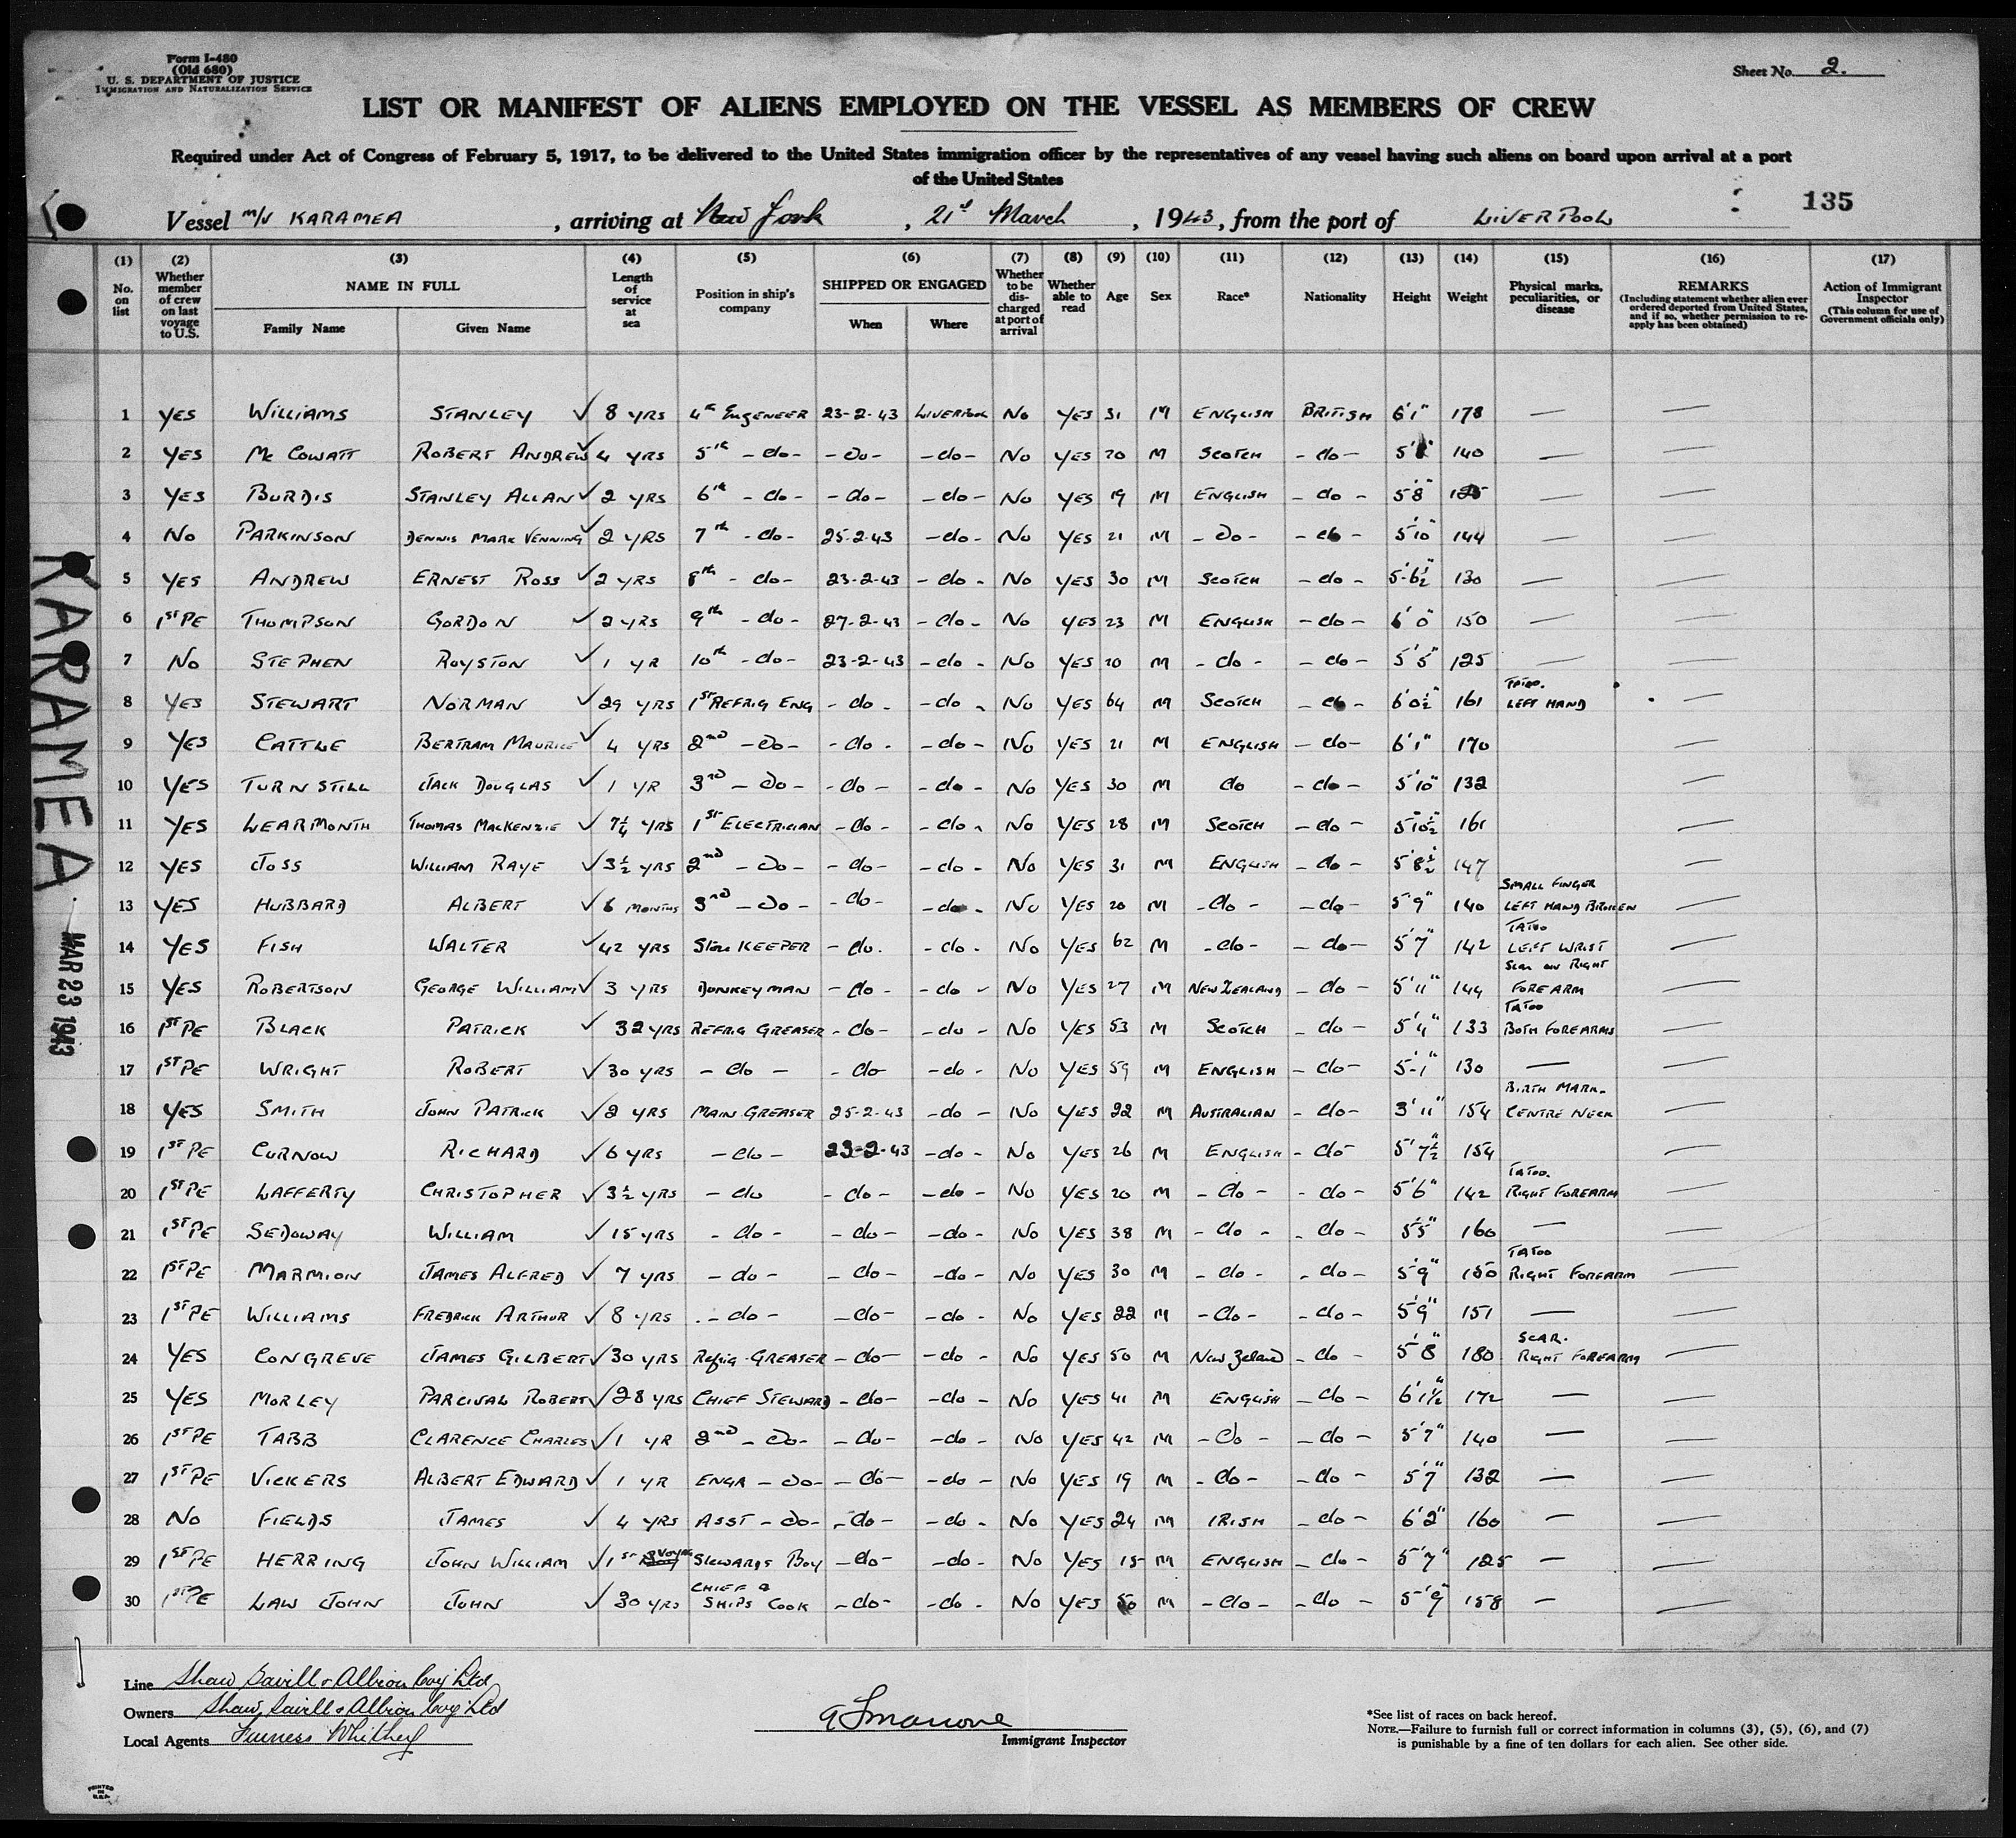 Form I-480
(Old 680)
U. S. DEPARTMENT OF JUSTICE
IMMIGRATION AND NATURALIZATION SERVICE
Sheet No. 2.
LIST OR MANIFEST OF ALIENS EMPLOYED ON THE VESSEL AS MEMBERS OF CREW
Required under Act of Congress of February 5, 1917, to be delivered to the United States immigration officer by the representatives of any vessel having such aliens on board upon arrival at a port
of the United States
135
Vessel M/V KARAMEA, arriving at New York, 21st March, 1943, from the port of LIVERPOOL
(1) No. on list (2) Whether member of crew on last voyage to U.S. (3) NAME IN FULL Family Name Given Name (4) Length of service at sea (5) Position in ship's company (6) SHIPPED OR ENGAGED When Where (7) Whether to be discharged at port of arrival (8) Whether able to read (9) Age (10) Sex (11) Race* (12) Nationality (13) Height (14) Weight (15) Physical marks, peculiarities, or disease (16) REMARKS (Including statement whether alien ever ordered deported from United States, and if so, whether permission to re-apply has been obtained) (17) Action of Immigrant Inspector (This column for use of Government officials only)
1 YES WILLIAMS STANLEY ✓ 8 YRS 4th ENGENEER 23-2-43 LIVERPOOL No YES 31 M ENGLISH BRITISH 6'1" 178 — —
2 YES Mc COWATT ROBERT ANDREW ✓ 4 YRS 5th -do- -do- -do- No YES 20 M SCOTCH -do- 140 — —
3 YES BURDIS STANLEY ALLAN ✓ 2 YRS 6th -do- -do- -do- No YES 19 M ENGLISH -do- 5'8" — —
4 No PARKINSON DENNIS MARK VENNING ✓ 2 YRS 7th -do- 25-2-43 -do- No YES 21 M -do- -do- 5'10" 144 — —
5 YES ANDREW ERNEST ROSS ✓ 2 YRS 8th -do- 23-2-43 -do- No YES 30 M SCOTCH -do- 5'6½" 130 — —
6 1ST PE THOMPSON GORDON ✓ 2 YRS 9th -do- 27-2-43 -do- No YES 23 M ENGLISH -do- 6'0" 150 — —
7 No STEPHEN ROYSTON ✓ 1 YR 10th -do- 23-2-43 -do- No YES 20 M -do- -do- 5'5" 125 — —
8 YES STEWART NORMAN ✓ 29 YRS 1ST REFRIG ENG -do- -do- No YES 64 M SCOTCH -do- 6'0½" 161 TATOO. LEFT HAND —
9 YES CATTLE BERTRAM MAURICE ✓ 4 YRS 2nd -do- -do- -do- No YES 21 M ENGLISH -do- 6'1" 170 —
10 YES TURNSTILL JACK DOUGLAS ✓ 1 YR 3rd -do- -do- -do- No YES 30 M do -do- 5'10" 132 —
11 YES LEARMONTH THOMAS MACKENZIE ✓ 7¼ YRS 1ST ELECTRICIAN -do- -do- No YES 28 M SCOTCH -do- 5'10½" 161 —
12 YES JOSS WILLIAM RAYE ✓ 3½ YRS 2nd -do- -do- -do- No YES 31 M ENGLISH -do- 5'8½" 147 —
13 YES HUBBARD ALBERT ✓ 6 MONTHS 3rd -do- -do- -do- No YES 20 M -do- -do- 5'9" 140 SMALL FINGER LEFT HAND BROKEN —
14 YES FISH WALTER ✓ 42 YRS Store KEEPER -do- -do- No YES 62 M -do- -do- 5'7" 142 TATOO LEFT WRIST —
15 YES ROBERTSON GEORGE WILLIAM ✓ 3 YRS DONKEYMAN -do- -do- No YES 27 M NEW ZEALAND -do- 5'11" 144 Scar on RIGHT FOREARM —
16 1ST PE BLACK PATRICK ✓ 32 YRS REFRIG GREASER -do- -do- No YES 53 M SCOTCH -do- 5'4" 133 TATOO BOTH FOREARMS —
17 1ST PE WRIGHT ROBERT ✓ 30 YRS -do- -do- -do- No YES 59 M ENGLISH -do- 5'1" 130 — —
18 YES SMITH JOHN PATRICK ✓ 2 YRS MAIN GREASER 25-2-43 -do- No YES 22 M AUSTRALIAN -do- 5'11" 154 BIRTH MARK. CENTRE NECK —
19 1ST PE CURNOW RICHARD ✓ 6 YRS -do- 23-2-43 -do- No YES 26 M ENGLISH -do- 5'7½" 154 —
20 1ST PE LAFFERTY CHRISTOPHER ✓ 3½ YRS -do -do- -do- No YES 20 M -do- -do- 5'6" 142 TATOO. RIGHT FOREARM —
21 1ST PE SEDOWAY WILLIAM ✓ 15 YRS -do- -do- -do- No YES 38 M -do- -do- 5'5" 160 — —
22 1ST PE MARMION JAMES ALFRED ✓ 7 YRS -do- -do- -do- No YES 30 M -do- -do- 5'9" 150 TATOO RIGHT FOREARM —
23 1ST PE WILLIAMS FREDRICK ARTHUR ✓ 8 YRS -do- -do- -do- No YES 22 M -do- -do- 5'9" 151 — —
24 YES CONGREVE JAMES GILBERT ✓ 30 YRS Refrig GREASER -do- -do- No YES 50 M New Zeland -do- 5'8" 180 SCAR. RIGHT FOREARM —
25 YES MORLEY PARCIVAL ROBERT ✓ 28 YRS CHIEF STEWARD -do- -do- No YES 41 M ENGLISH -do- 6'1½" 172 — —
26 1ST PE TABB CLARENCE CHARLES ✓ 1 YR 2nd -do- -do- -do- No YES 42 M -do- -do- 5'7" 140 — —
27 1ST PE VICKERS ALBERT EDWARD ✓ 1 YR ENGR -do- -do- -do- No YES 19 M -do- -do- 5'7" 132 — —
28 No FIELDS JAMES ✓ 4 YRS ASST -do- -do- -do- No YES 24 M IRISH -do- 6'2" 160 — —
29 1ST PE HERRING JOHN WILLIAM ✓ 1ST VOYAGE STEWARDS BOY -do- -do- No YES 15 M ENGLISH -do- 5'7" 125 — —
30 1ST PE LAW JOHN JOHN ✓ 30 YRS CHIEF & SHIPS COOK -do- -do- No YES 50 M -do- -do- 5'9" 158 — —
KARAMEA
MAR 23 1943
Line Shaw Savill & Albion Coy Ltd
Owners Shaw, Savill & Albion Coy Ltd
Local Agents Furness Whithey
Immigrant Inspector
*See list of races on back hereof.
NOTE.—Failure to furnish full or correct information in columns (3), (5), (6), and (7)
is punishable by a fine of ten dollars for each alien. See other side.
PRINTED
IN
U.S.A.